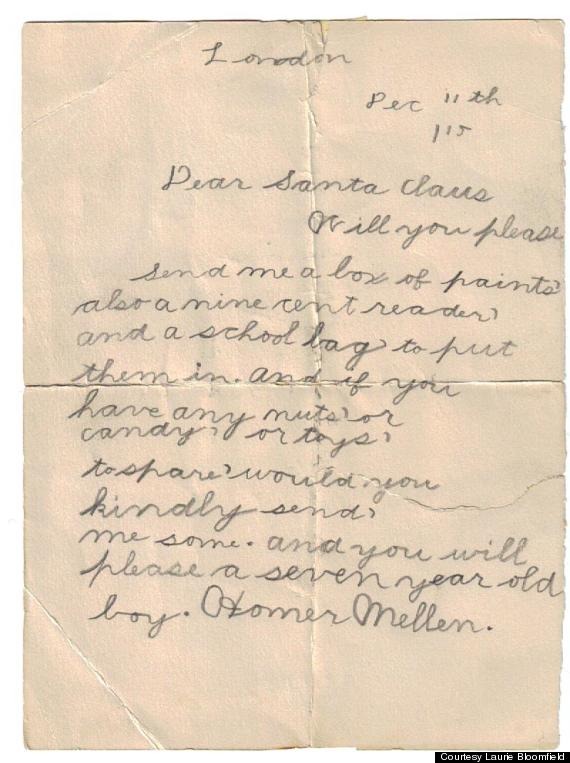 London
Dec 11th
1915
Dear Santa Claus
Will you please
send me a box of paints,
also a nine cent reader,
and a school bag, to put
them in. and if you
have any nuts, or
candy, or toys,
to spare, would you
kindly send,
me some. and you will
please a seven year old
boy. Homer Mellen.
Courtesy Laurie Bloomfield